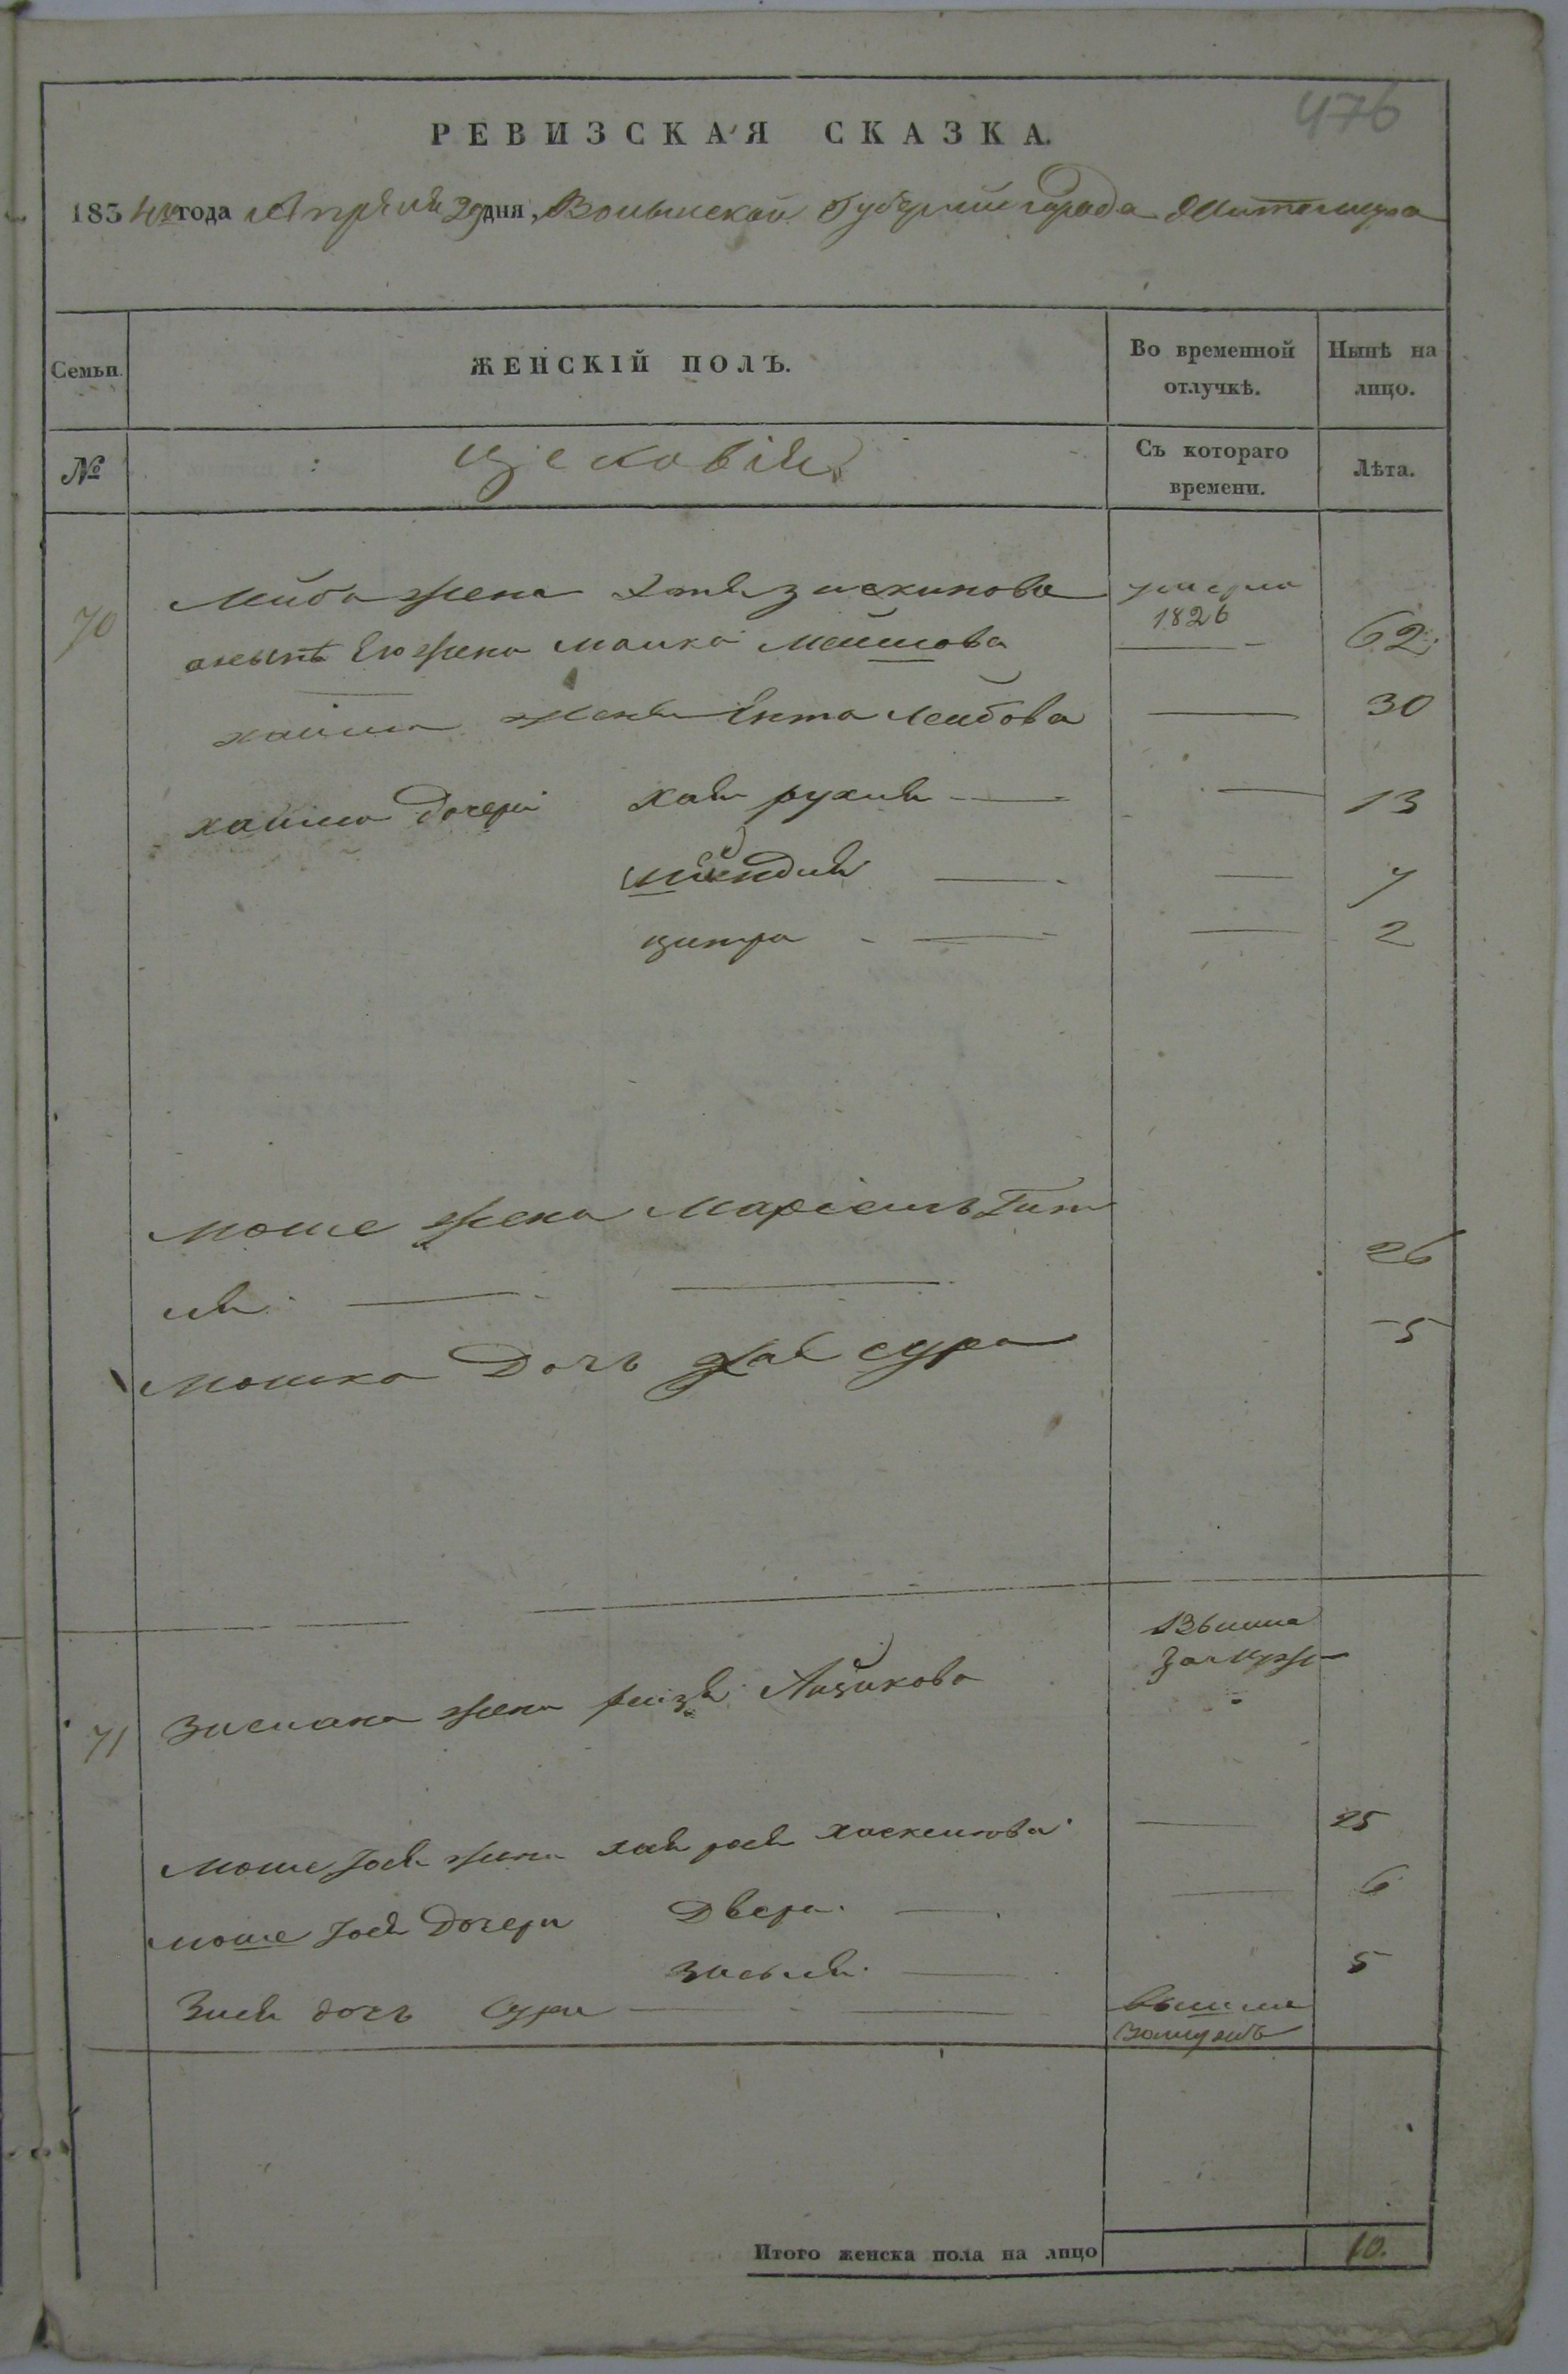 476
РЕВИЗСКАЯ СКАЗКА.
1834го года Апреля 29 дня, Волынской Губернии города Житомира
Семьи.
ЖЕНСКІЙ ПОЛЪ.
Во временной отлучкѣ.
Нынѣ на лицо.
№
Съ котораго времени.
Лѣта.
70
Лейба жена Зискинова умерла 1826
Его жена Малка 62
Хаима жена Ента Лейбова — 30
Хаима дочери Хая рухля — — 13
— — 7
ципра — — 2
Моше жена Маріемъ Гит
ля — — 26
Мошка дочь Хая сура 5
71 Зисмана жена рейзя Айзикова Вышла замужъ
Моше Іося жена хая рося хаскелова — 25
Моше Іося дочери Двера — — 6
зисля — 5
Зися дочь Сура — — вышла
замужъ
Итого женска пола на лицо 10.